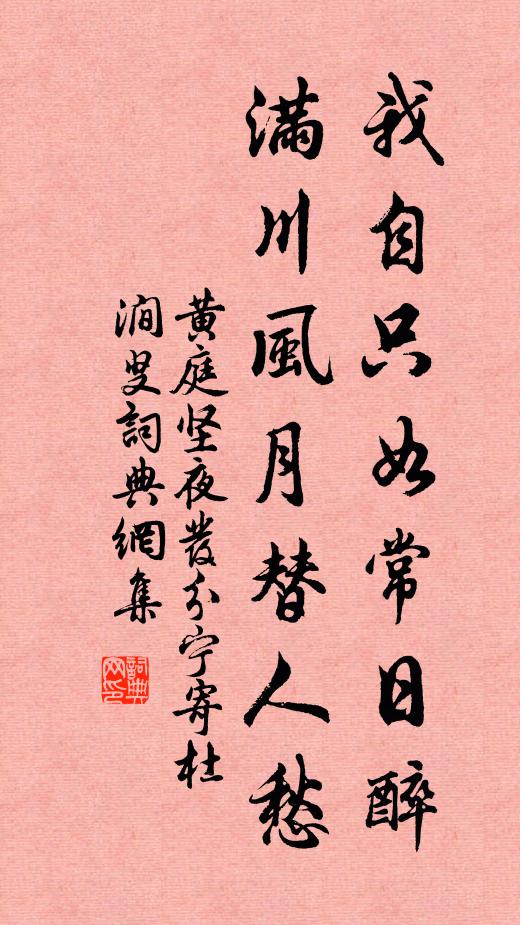 我自只如常日醉
滿川風月替人愁
黄庭坚夜發分宁寄杜
澗叟詞典網集
詞典
网印